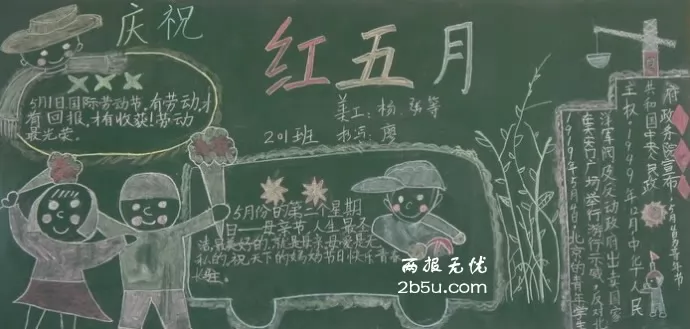 庆祝
红五月
美工：杨、张等
201班
5月1日国际劳动节，有劳动，才
有回报，才有收获！劳动
最光荣。
5月份的第二个星期
日——母亲节，人生最圣
洁、最美好的，就是母亲，母爱是无
私的，祝天下的妈妈节日快乐青春
长驻。
府政务院宣布
共和国中央人民政
主权，1949年12月中华人民
1919年5月4日，北京的青年学生
在天安门广场举行游行示威，反对北
洋军阀反动政府出卖国家
两报无优
2b5u.com